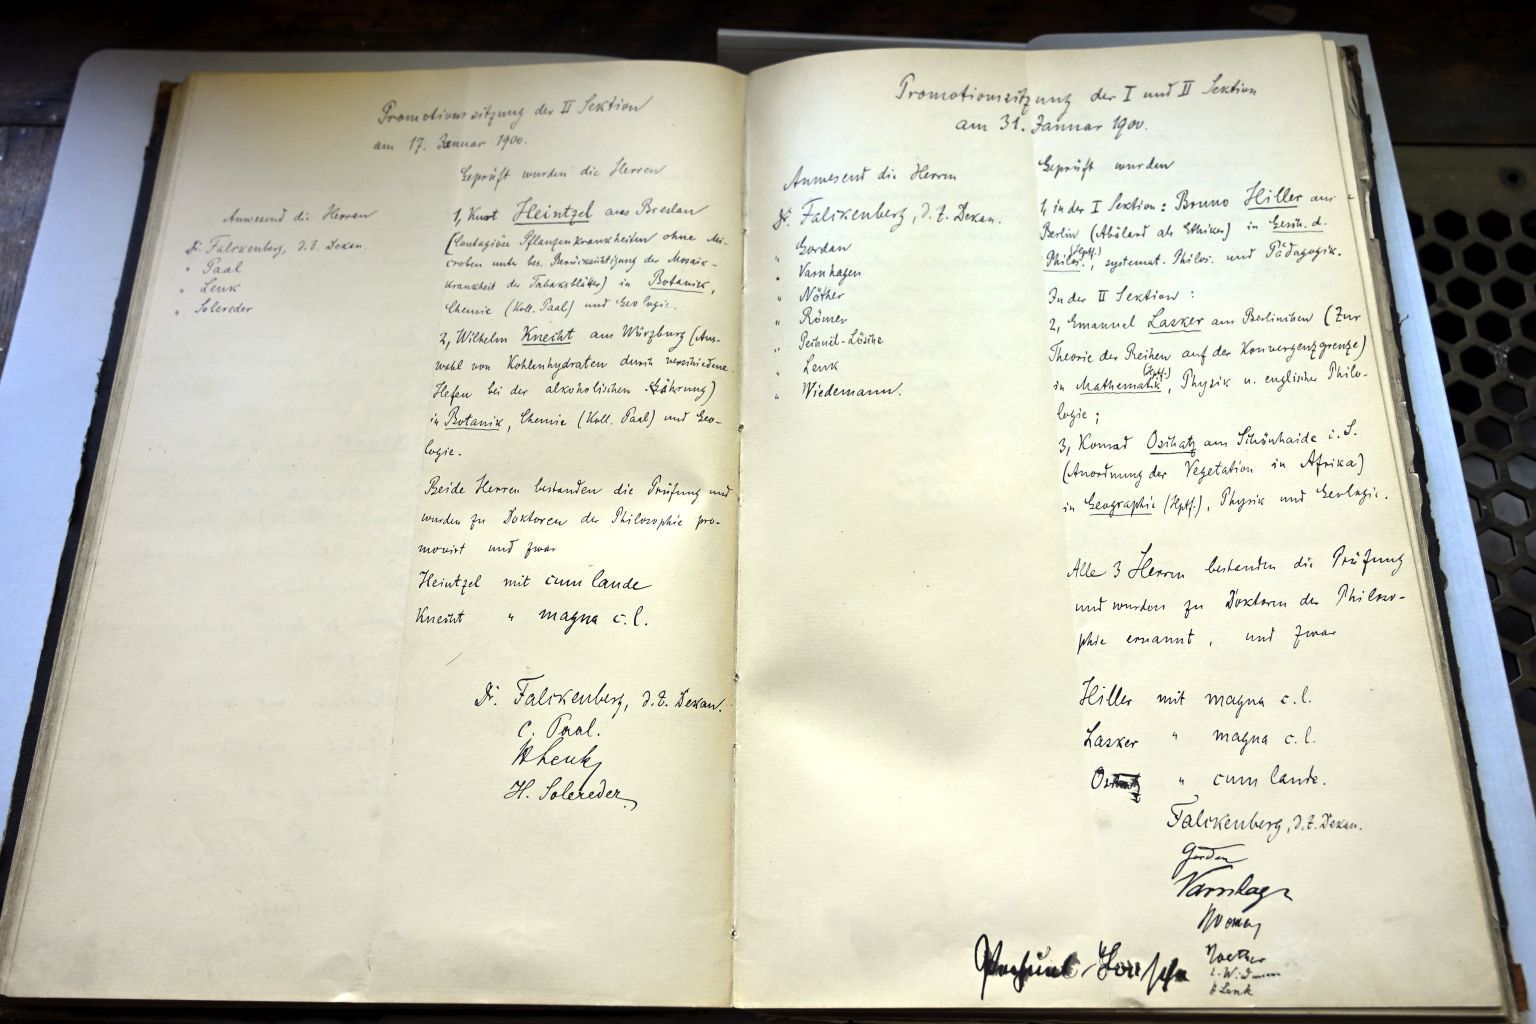 Promotionssitzung der II Sektion
am 17. Januar 1900.
Geprüft wurden die Herren
Anwesend die Herren
Dr. Falckenberg, d. Z. Dekan.
" Paal
" Lenk
" Solereder
1, Kurt Heintzel aus Breslau
(Contagiöse Pflanzenkrankheiten ohne Mi-
croben unter bes. Berücksichtigung der Mosaik-
krankheit der Tabaksblätter) in Botanik,
Chemie (Koll. Paal) und Geologie.
2, Wilhelm Knecht aus Würzburg (Aus-
wahl von Kohlenhydraten durch verschiedene
Hefen bei der alkoholischen Gährung)
in Botanik, Chemie (Koll. Paal) und Geo-
logie.
Beide Herren bestanden die Prüfung und
wurden zu Doktoren der Philosophie pro-
movirt und zwar
Heintzel mit cum laude
Knecht " magna c. l.
Dr. Falckenberg, d. Z. Dekan.
C. Paal.
H Lenk
H. Solereder
Promotionssitzung der I und II Sektion
am 31. Januar 1900.
Anwesend die Herren
Dr. Falckenberg, d. Z. Dekan.
" Gordan
" Varnhagen
" Nöther
" Römer
" Pechuël-Lösche
" Lenk
" Wiedemann.
Geprüft wurden
1, in der I Sektion: Bruno Hiller aus
Berlin (Abälard als Ethiker) in Gesch. d.
Philos. (Hptf.), systemat. Philos. und Pädagogik.
In der II Sektion:
2, Emanuel Lasker aus Berlinchen (Zur
Theorie der Reihen auf der Konvergenzgrenze)
in Mathematik (Hptf.), Physik u. englischer Philo-
logie;
3, Konrad Oschatz aus Schönhaide i. S.
(Anordnung der Vegetation in Afrika)
in Geographie (Hptf.), Physik und Geologie.
Alle 3 Herren bestanden die Prüfung
und wurden zu Doktoren der Philoso-
phie ernannt, und zwar
Hiller mit magna c. l.
Lasker " magna c. l.
Oschatz " cum laude.
Falckenberg, d. Z. Dekan.
Gordan
Varnhagen
Römer
Noether
E. Wiedemann
H Lenk
Pechuël-Loesche